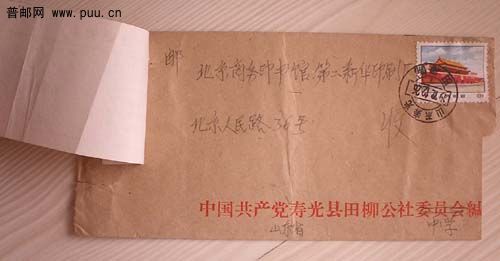 普邮网
www.puu.cn
邮
北京商务印书馆第二新华印刷厂
北京人民路36号
收
山东寿光
中国共产党寿光县田柳公社委员会缄
山东省
中学